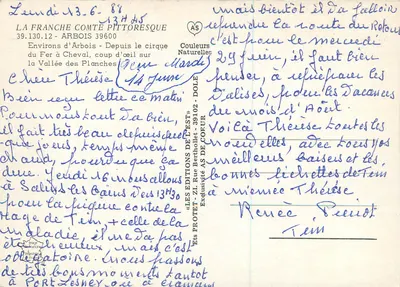 Lundi 13.6.88
13H45
LA FRANCHE COMTÉ PITTORESQUE
39.130.12 - ARBOIS 39600
Environs d'Arbois - Depuis le cirque
du Fer à Cheval, coup d'œil sur
la Vallée des Planches
pour Mardi
14 Juin
Couleurs
Naturelles
AS
Chère Thérèse
Bien reçu lettre ce matin
Pour nous tout va bien, il
fait très beau depuis
que jours, temps même
chaud, pourvu que ça
dure. Jeudi 16 nous allons
à Salins les Bains à 13H30
pour la piqure contre la
rage de Tem + celle de la
maladie, il ne va pas
être heureux, mais c'est
obligatoire. Nous passons
de très bons moments tantot
à Port Lesney, ou à
"LES EDITIONS DE L'EST"
Ets PROTET - 22, Rue Berthollet - 39102 - DOLE
Exclusivité AS DE CŒUR
mais bientôt il va falloir
reprendre la route du Retour
c'est pour le mercredi
29 Juin, il faut bien
penser, à repréparer les
Valises, pour les Vacances
du mois d'Août.
Voilà Thérèse toutes les
nouvelles, avec tous nos
meilleurs baisers et les
bonnes lichettes de Tem
à mémée Thérèse
Renée
Tem